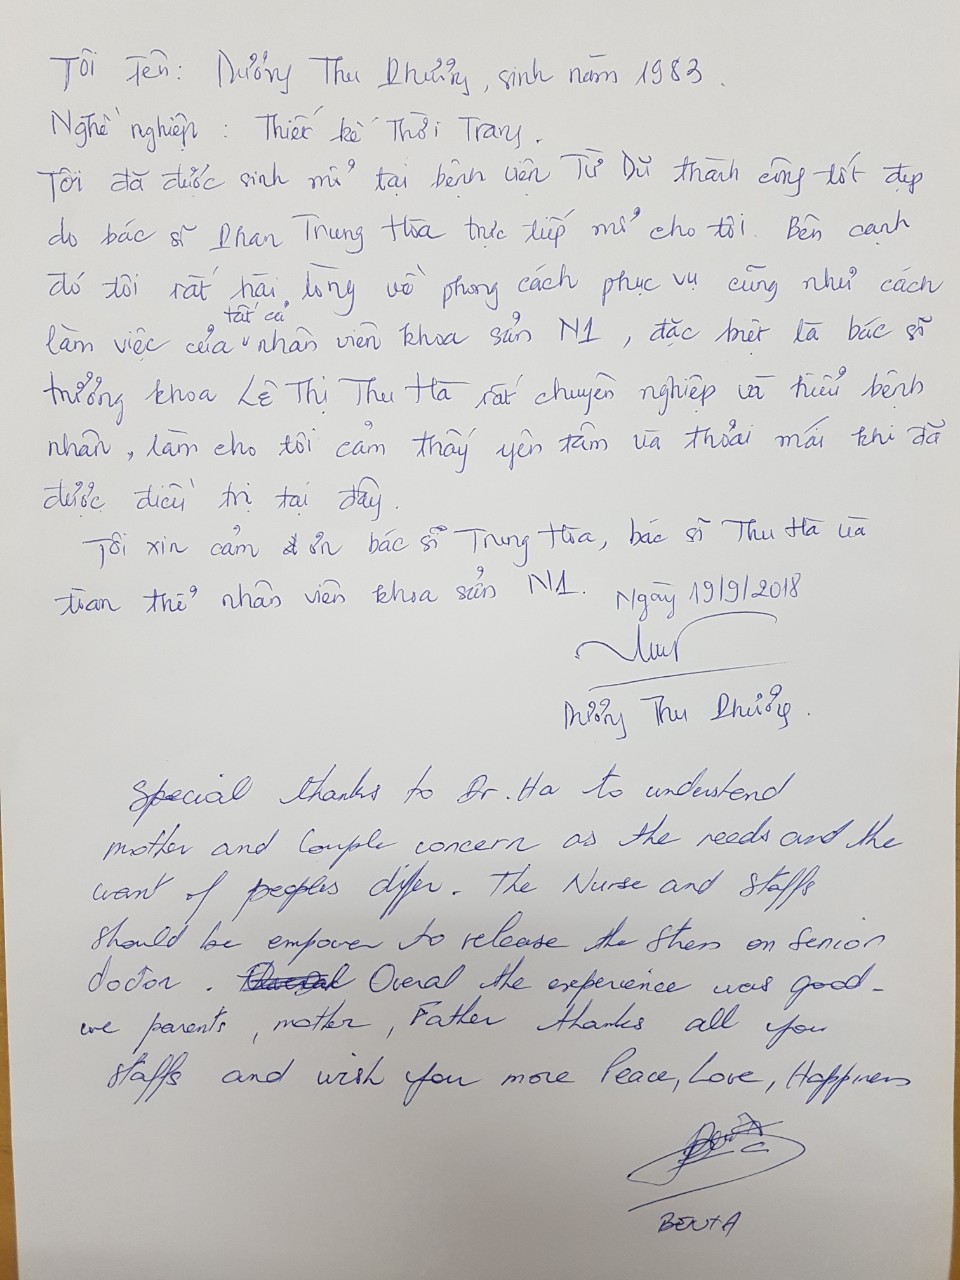 Tôi Tên: Dương Thu Phương, sinh năm 1983.
Nghề nghiệp: Thiết kế Thời Trang.
Tôi đã được sinh mổ tại bệnh viện Từ Dũ thành công tốt đẹp
do bác sĩ Phan Trung Hòa trực tiếp mổ cho tôi. Bên cạnh
đó tôi rất hài lòng về phong cách phục vụ cũng như cách
làm việc của tất cả nhân viên khoa sản N1, đặc biệt là bác sĩ
trưởng khoa Lê Thị Thu Hà rất chuyên nghiệp và hiểu bệnh
nhân, làm cho tôi cảm thấy yên tâm và thoải mái khi đã
được điều trị tại đây.
Tôi xin cảm ơn bác sĩ Trung Hòa, bác sĩ Thu Hà và
toàn thể nhân viên khoa sản N1. Ngày 19/9/2018
Dương Thu Phương.
Special thanks to Dr. Ha to understend
mother and Couple concern as the needs and the
want of peoples differ. The Nurse and Staffs
should be empover to release the stress on Senior
doctor. Overal the experience was good-
we parents, mother, Father thanks all you
staffs and wish you more Peace, Love, Happiness
BENTA